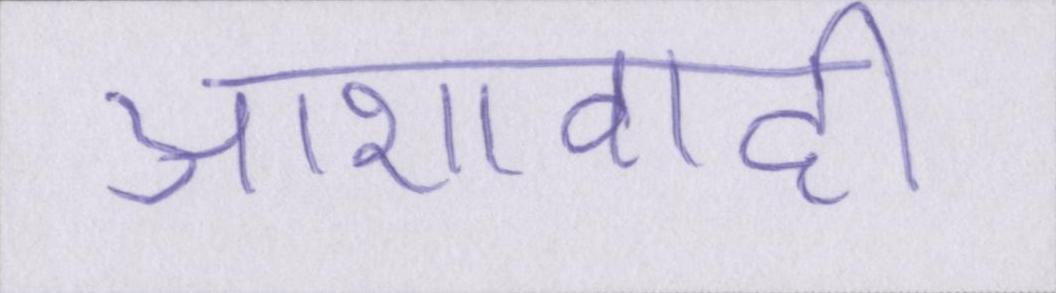 आशावादी